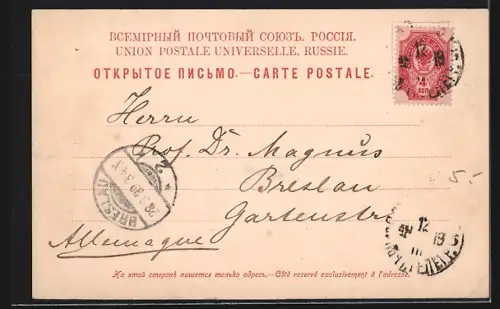 ВСЕМІРНЫЙ ПОЧТОВЫЙ СОЮЗЪ. РОССІЯ.
UNION POSTALE UNIVERSELLE. RUSSIE.
ОТКРЫТОЕ ПИСЬМО.—CARTE POSTALE.
12
19
4
КОП
Herrn
Prof. Dr. Magnus
Breslau
Gartenstr
Allemagne
BRESLAU
5-
12
19
III
На этой сторонѣ пишется только адресъ.—Côté reservé exclusivement à l'adresse.